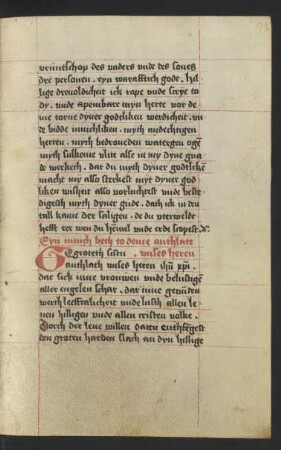 vrúntschop des vaders vnde des sones
dre personen . eyn warafftich godt . hil
lige drevoldicheit ick rape vnde scrye to
dy . vnde apenbare myn herte vor de
me torne dyner godtliken werdicheit . vn
de bidde innichliken . myth andechtigen
herten . myth bedroueden wateregen oge
myth fulkome vlite alse du my dyne gna
de
macht my also sterkest myt dyner god
liken wisheit also vorluchtest vnde beste
digest myth dyner gude . dath ick in den
tall kame der saligen . de du vterwelde
hefft eer wen du hemel vnde erde scopest
Eyn innich beth to deme anthlate
Gegroteth sistu . vnses heren
anthlath vnses heren ihesu xpi .
dar sick inne vrouwen vnde belustigen
aller engelen schar . dar inne getunden
werth leefftalicheit vnde lusth allen le
uen hilligen vnde allen cristen volke .
Dorch der leue willen dattu enthfengest
den groten harden slach an dyn hillige